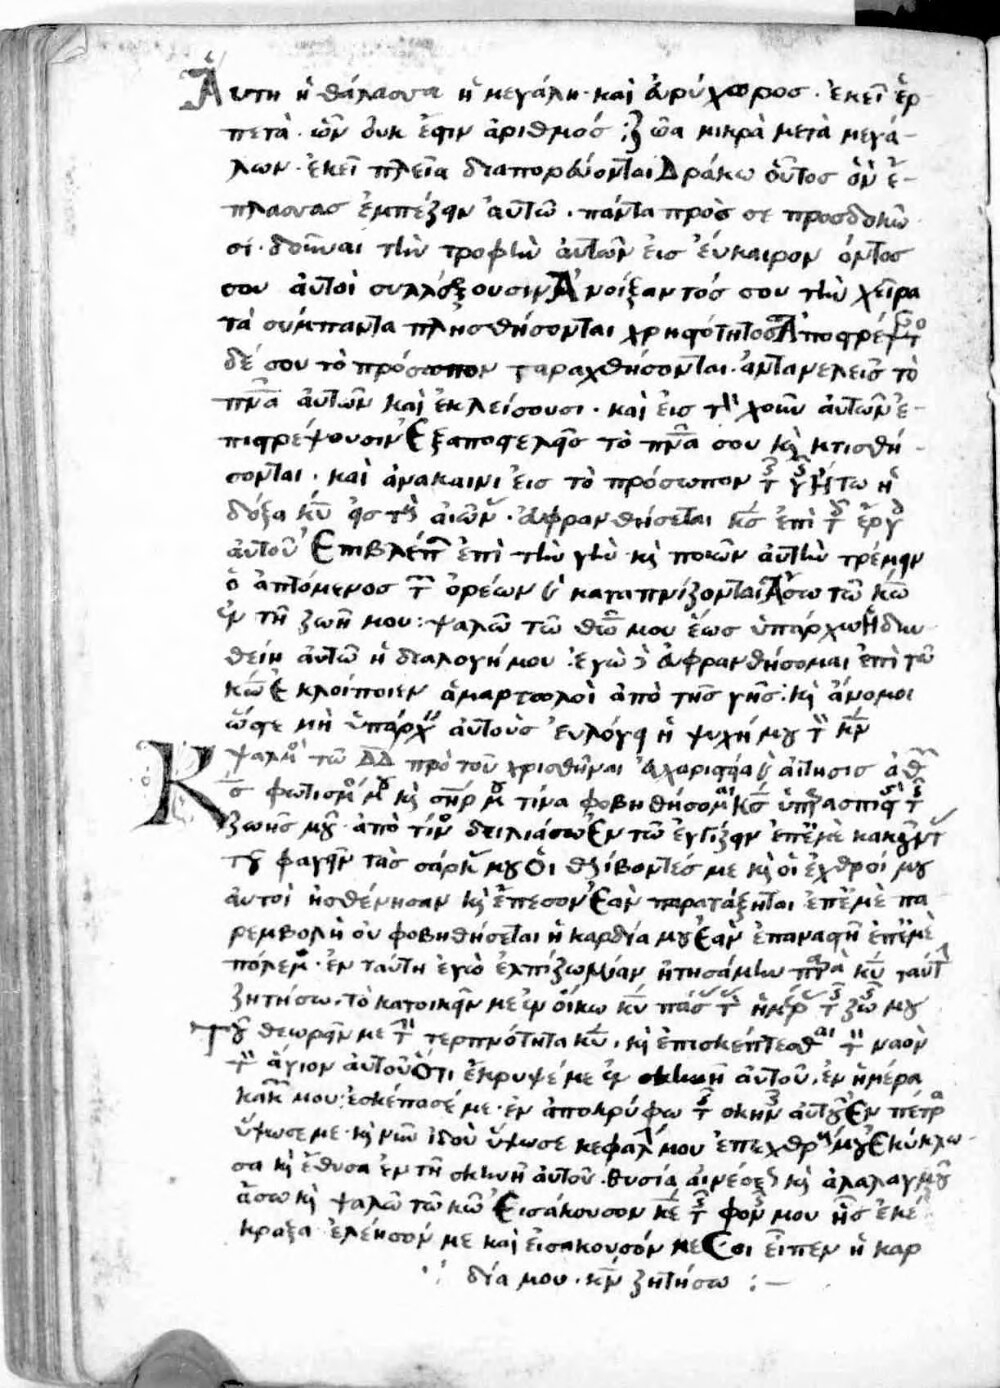 Ἄυτη ἡ θάλασσα ἡ μεγάλη · καὶ ἐυρύχωρος · ἐκεῖ ἑρ-
πετὰ · ὧν ὀυκ ἔστιν ἀριθμός : ζῶα μικρὰ μετὰ μεγά-
λων · ἐκεῖ πλοῖα διαπορεύονται Δράκω οὗτος ὃν ἔ-
πλασσας ἐμπέζειν ἀυτῶ · πάντα πρὸς σὲ προσδοκῶ
σι · δοῦναι τὴν τροφὴν ἀυτῶν εἰς ἔυκαιρον δόντος
σου ἀυτοὶ συλλέξουσιν Ἀνοίξαντός σου τὴν χεῖρα
τὰ σύμπαντα πλησθήσονται χρηστότητος Ἀποστρέψαντ
δέ σου τὸ πρόσωπον ταραχθήσονται · ἀντανελεῖς τὸ
πνᾶ ἀυτῶν καὶ ἐκλείσουσι · καὶ εἰς τὸν χοῦν ἀυτῶν ἐ-
πιστρέψουσιν Ἐξαποστελεῖς τὸ πνᾶ σου κὶ κτισθή-
σονται · καὶ ἀνακαινιεῖς τὸ πρόσωπον τ γῆς Ἤτω ἡ
δόξα κῦ εἰς τοὺς αἰῶν · ἐυφρανθήσεται κς ἐπὶ τ ἔργ
ἀυτοῦ Ἐπιβλέπ ἐπὶ τὴν γὴν κὶ ποιῶν ἀυτὴν τρέμειν
ὁ ἁπτόμενος τ ὀρέων κὶ καπνίζονται Ἄσω τῶ κῶ
ἐν τῆ ζωῆ μου : ψαλῶ τῶ θῶ μου ἕως ὑπάρχω Ἡδυν-
θείη ἀυτῶ ἡ διαλογή μου · ἐγὼ δὲ ἐυφρανθήσομαι ἐπὶ τῶ
κῶ Ἐκλοίποιεν ἁμαρτωλοὶ ἀπὸ τῆς γῆς : κὶ ἄνομοι
ὥστε μὴ ὑπάρχ ἀυτοὺς ἐυλόγει ἡ ψυχή μου τ κν
ψαλμὸς τῶ ΔΔ πρὸ τοῦ χρισθῆναι ἐυχαριστία κὶ ἀίτησις
Κς φωτισμ μ κὶ σηρ μ τίνα φοβηθήσομαι κς ὑπερασπιστὴς τ
ζωῆς μου · ἀπὸ τίνος δειλιάσω Ἐν τῶ ἐγγίζειν ἐπ ἐμὲ κακοῦντ
τοῦ φαγεῖν τὰς σάρκ μου Οἱ θλίβοντές με κὶ οἱ ἐχθροί μου
ἀυτοὶ ἠσθένησαν κὶ ἔπεσον Ἐὰν παρατάξηται ἐπ ἐμὲ πα-
ρεμβολὴ οὐ φοβηθήσεται ἡ καρδία μου Ἐὰν ἐπαναστῆ ἐπ ἐμὲ
πόλεμ · ἐν ταύτη ἐγὼ ἐλπίζω Μίαν ἠτησάμην παρὰ κῦ ταύτ
ζητήσω · τὸ κατοικεῖν με ἐν οἴκω κῦ πάσ τ ἡμέρ τ ζω μου
Τοῦ θεωρεῖν με τ τερπνότητα κῦ · κὶ ἐπισκέπτεσθαι τ ναὸν
τ ἅγιον ἀυτοῦ Ὅτι ἔκρυψέ με ἐν σκηνῆ ἀυτοῦ · ἐν ἡμέρα
κακ μου · ἐσκέπασέ με · ἐν ἀποκρύφω τ σκην ἀυτοῦ Ἐν πέτρα
ὕψωσε με · κὶ νῦν ἰδοὺ ὕψωσε κεφαλ μου ἐπ ἐχθρ μου Ἐκύκλω-
σα κὶ ἔθυσα ἐν τῆ σκηνῆ ἀυτοῦ · θυσία ἀινέσε κὶ ἀλαλαγμοῦ
ἄσω κὶ ψαλῶ τῶ κῶ Ἐισάκουσον κε τ φον μου ἧς ἐκέ
κραξα · ἐλέησόν με καὶ ἐισάκουσόν με Σοι εἶπεν ἡ καρ
δία μου · κν ζητήσω : —